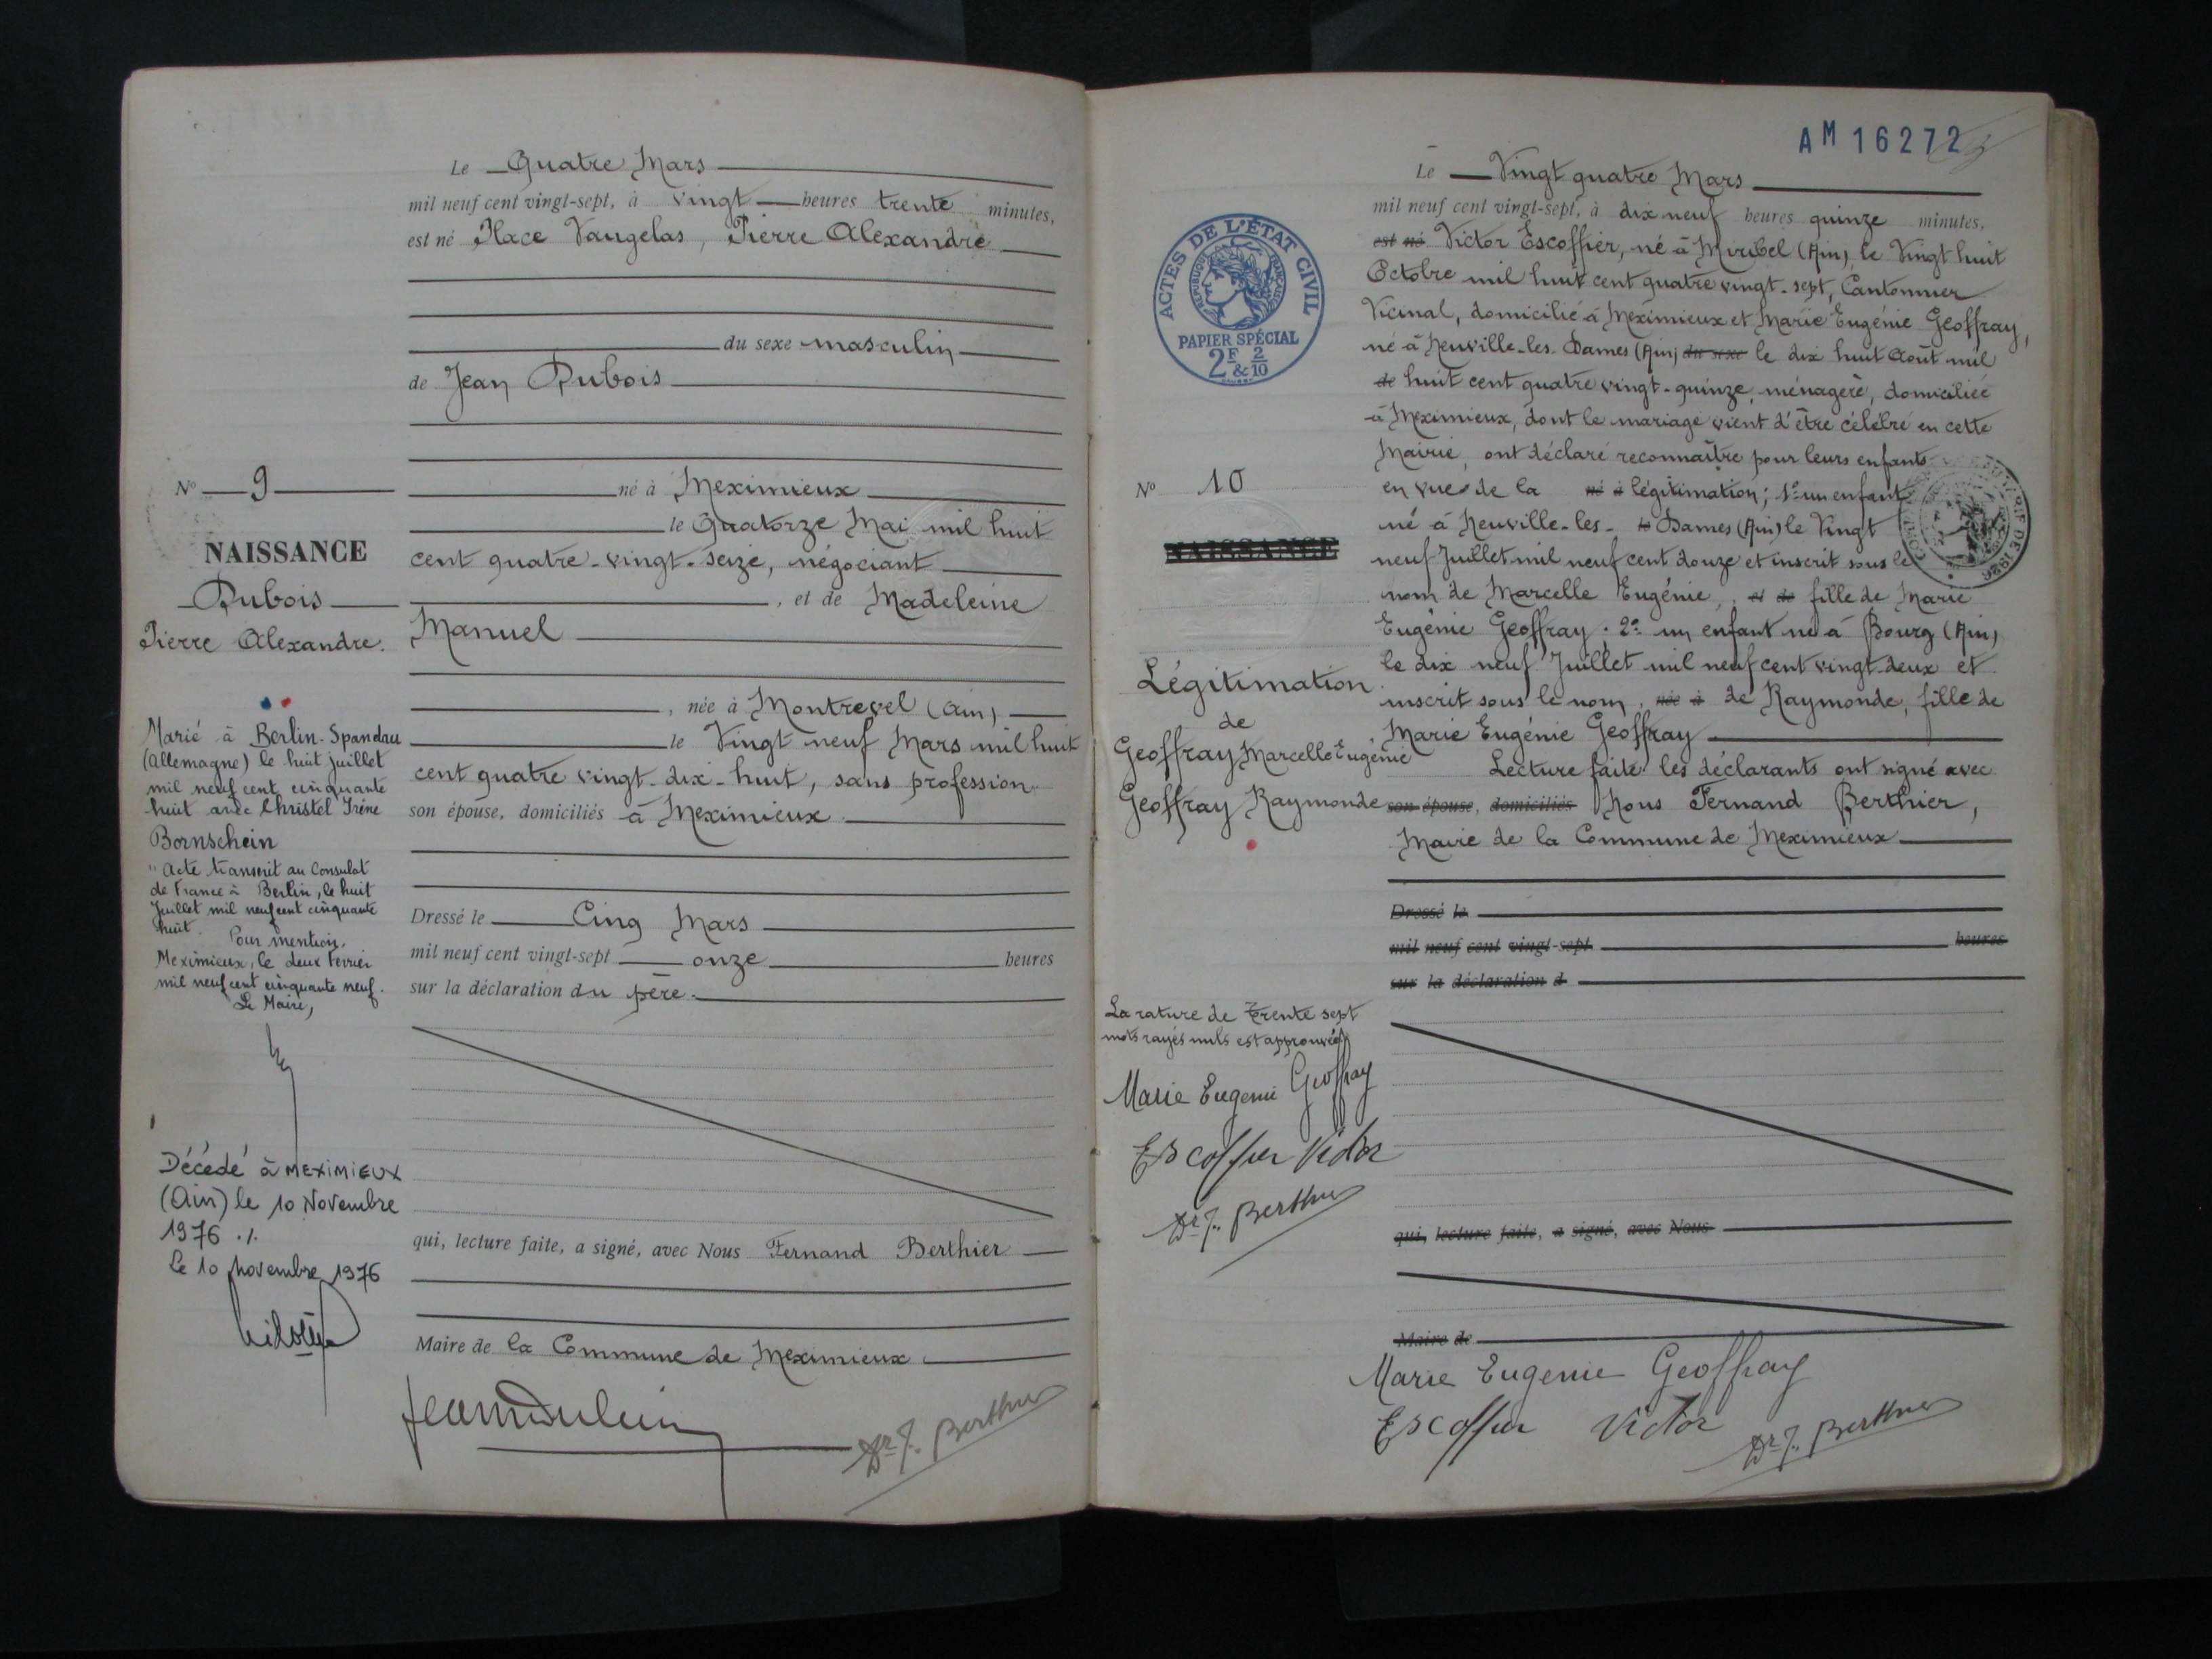 Le Quatre Mars
mil neuf cent vingt-sept, à vingt heures trente minutes,
est né Place Vaugelas, Pierre Alexandre
du sexe masculin
de Jean Dubois
né à Meximieux
le Quatorze Mai mil huit
cent quatre-vingt-seize, négociant
, et de Madeleine
Manuel
, née à Montrevel (Ain)
le Vingt neuf Mars mil huit
cent quatre vingt-dix-huit, sans profession
son épouse, domiciliés à Meximieux
Dressé le Cinq Mars
mil neuf cent vingt-sept onze heures
sur la déclaration du père.
qui, lecture faite, a signé, avec Nous Fernand Berthier
Maire de la Commune de Meximieux
Dr F. Berthier
No 9
NAISSANCE
Dubois
Pierre Alexandre.
Marié à Berlin-Spandau
(Allemagne) le huit juillet
mil neuf cent cinquante
huit avec Christel Irène
Bornschein
"Acte transcrit au Consulat
de France à Berlin, le huit
Juillet mil neuf cent cinquante
huit.
Pour mention.
Meximieux, le deux Février
mil neuf cent cinquante neuf.
Le Maire,
Décédé à MEXIMIEUX
(Ain) le 10 Novembre
1976 ./.
Le 10 novembre 1976
AM 16272
Le Vingt quatre Mars
mil neuf cent vingt-sept, à dix neuf heures quinze minutes,
est né Victor Escoffier, né à Miribel (Ain), le Vingt huit
Octobre mil huit cent quatre vingt-sept, Cantonnier
Vicinal, domicilié à Meximieux et Marie Eugénie Geoffray,
né à Neuville-les-Dames (Ain) du sexe le dix huit Août mil
de huit cent quatre vingt-quinze, ménagère, domiciliée
à Meximieux, dont le mariage vient d'être célébré en cette
Mairie, ont déclaré reconnaître pour leurs enfants
en vue de la né à légitimation; 1° un enfant
né à Neuville-les- le Dames (Ain) le Vingt
neuf Juillet mil neuf cent douze et inscrit sous le
nom de Marcelle Eugénie, et de fille de Marie
Eugénie Geoffray; 2° un enfant né à Bourg (Ain)
le dix neuf Juillet mil neuf cent vingt-deux et
inscrit sous le nom, née à de Raymonde, fille de
Marie Eugénie Geoffray
Lecture faite les déclarants ont signé avec
son épouse, domiciliés Nous Fernand Berthier,
Maire de la Commune de Meximieux
Dressé le
mil neuf cent vingt-sept heures
sur la déclaration d
qui, lecture faite, a signé, avec Nous
Maire de
Marie Eugenie Geoffray
Escoffier Victor
Dr F. Berthier
ACTES DE L'ÉTAT CIVIL
REPUBLIQUE FRANÇAISE
PAPIER SPÉCIAL
2F & 2/10
No 10
NAISSANCE
Légitimation
de
Geoffray Marcelle Eugénie
Geoffray Raymonde
La rature de trente sept
mots rayés nuls est approuvée
Marie Eugenie Geoffray
Escoffier Victor
Dr F. Berthier